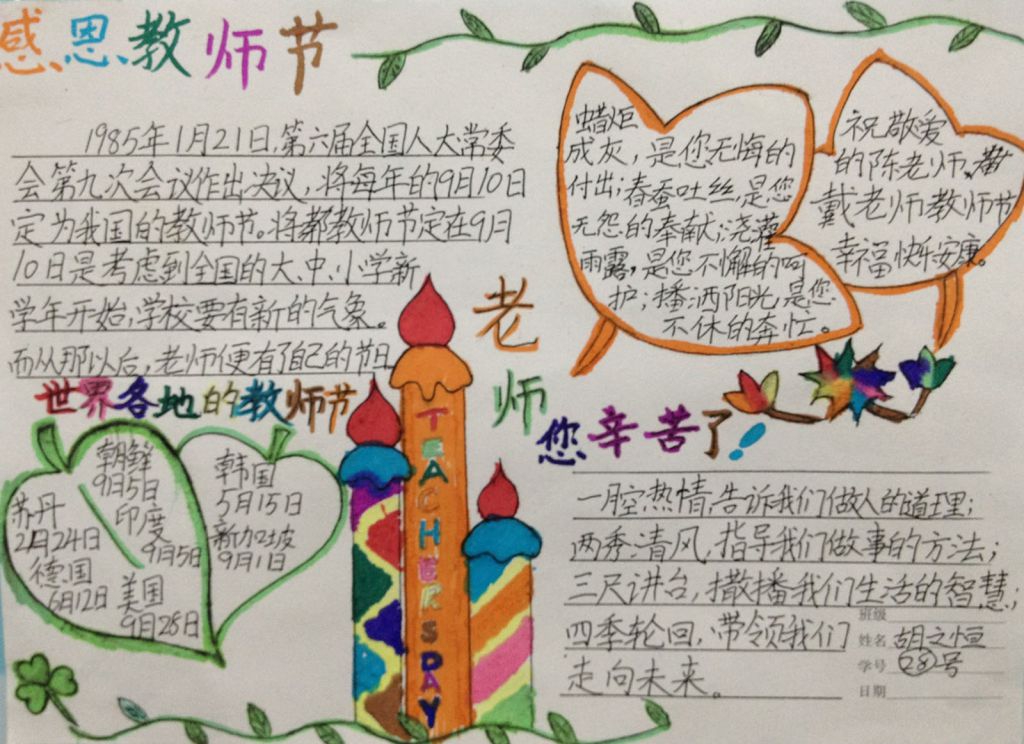 感恩教师节
1985年1月21日,第六届全国人大常委
会第九次会议作出决议,将每年的9月10日
定为我国的教师节。将教师节定在9月
10日是考虑到全国的大、中、小学新
学年开始,学校要有新的气象。
而从那以后,老师便有了自己的节日
蜡炬
成灰,是您无悔的
付出;春蚕吐丝,是您
无怨的奉献;浇灌
雨露,是您不懈的呵
护;播洒阳光,是您
不休的奔忙。
祝敬爱
的陈老师、
戴老师教师节
幸福快乐安康。
世界各地的教师节
朝鲜
9月5日
印度
9月5日
苏丹
2月24日
德国
6月12日
美国
9月28日
韩国
5月15日
新加坡
9月1日
TEACHERS DAY
老
师
您辛苦了!
一腔热情,告诉我们做人的道理;
两秀清风,指导我们做事的方法;
三尺讲台,撒播我们生活的智慧;
四季轮回,带领我们
走向未来。
班级
姓名 胡文恒
学号 28号
日期